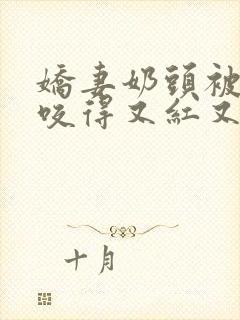 嬌妻奶頭被
咬得又紅又
十月